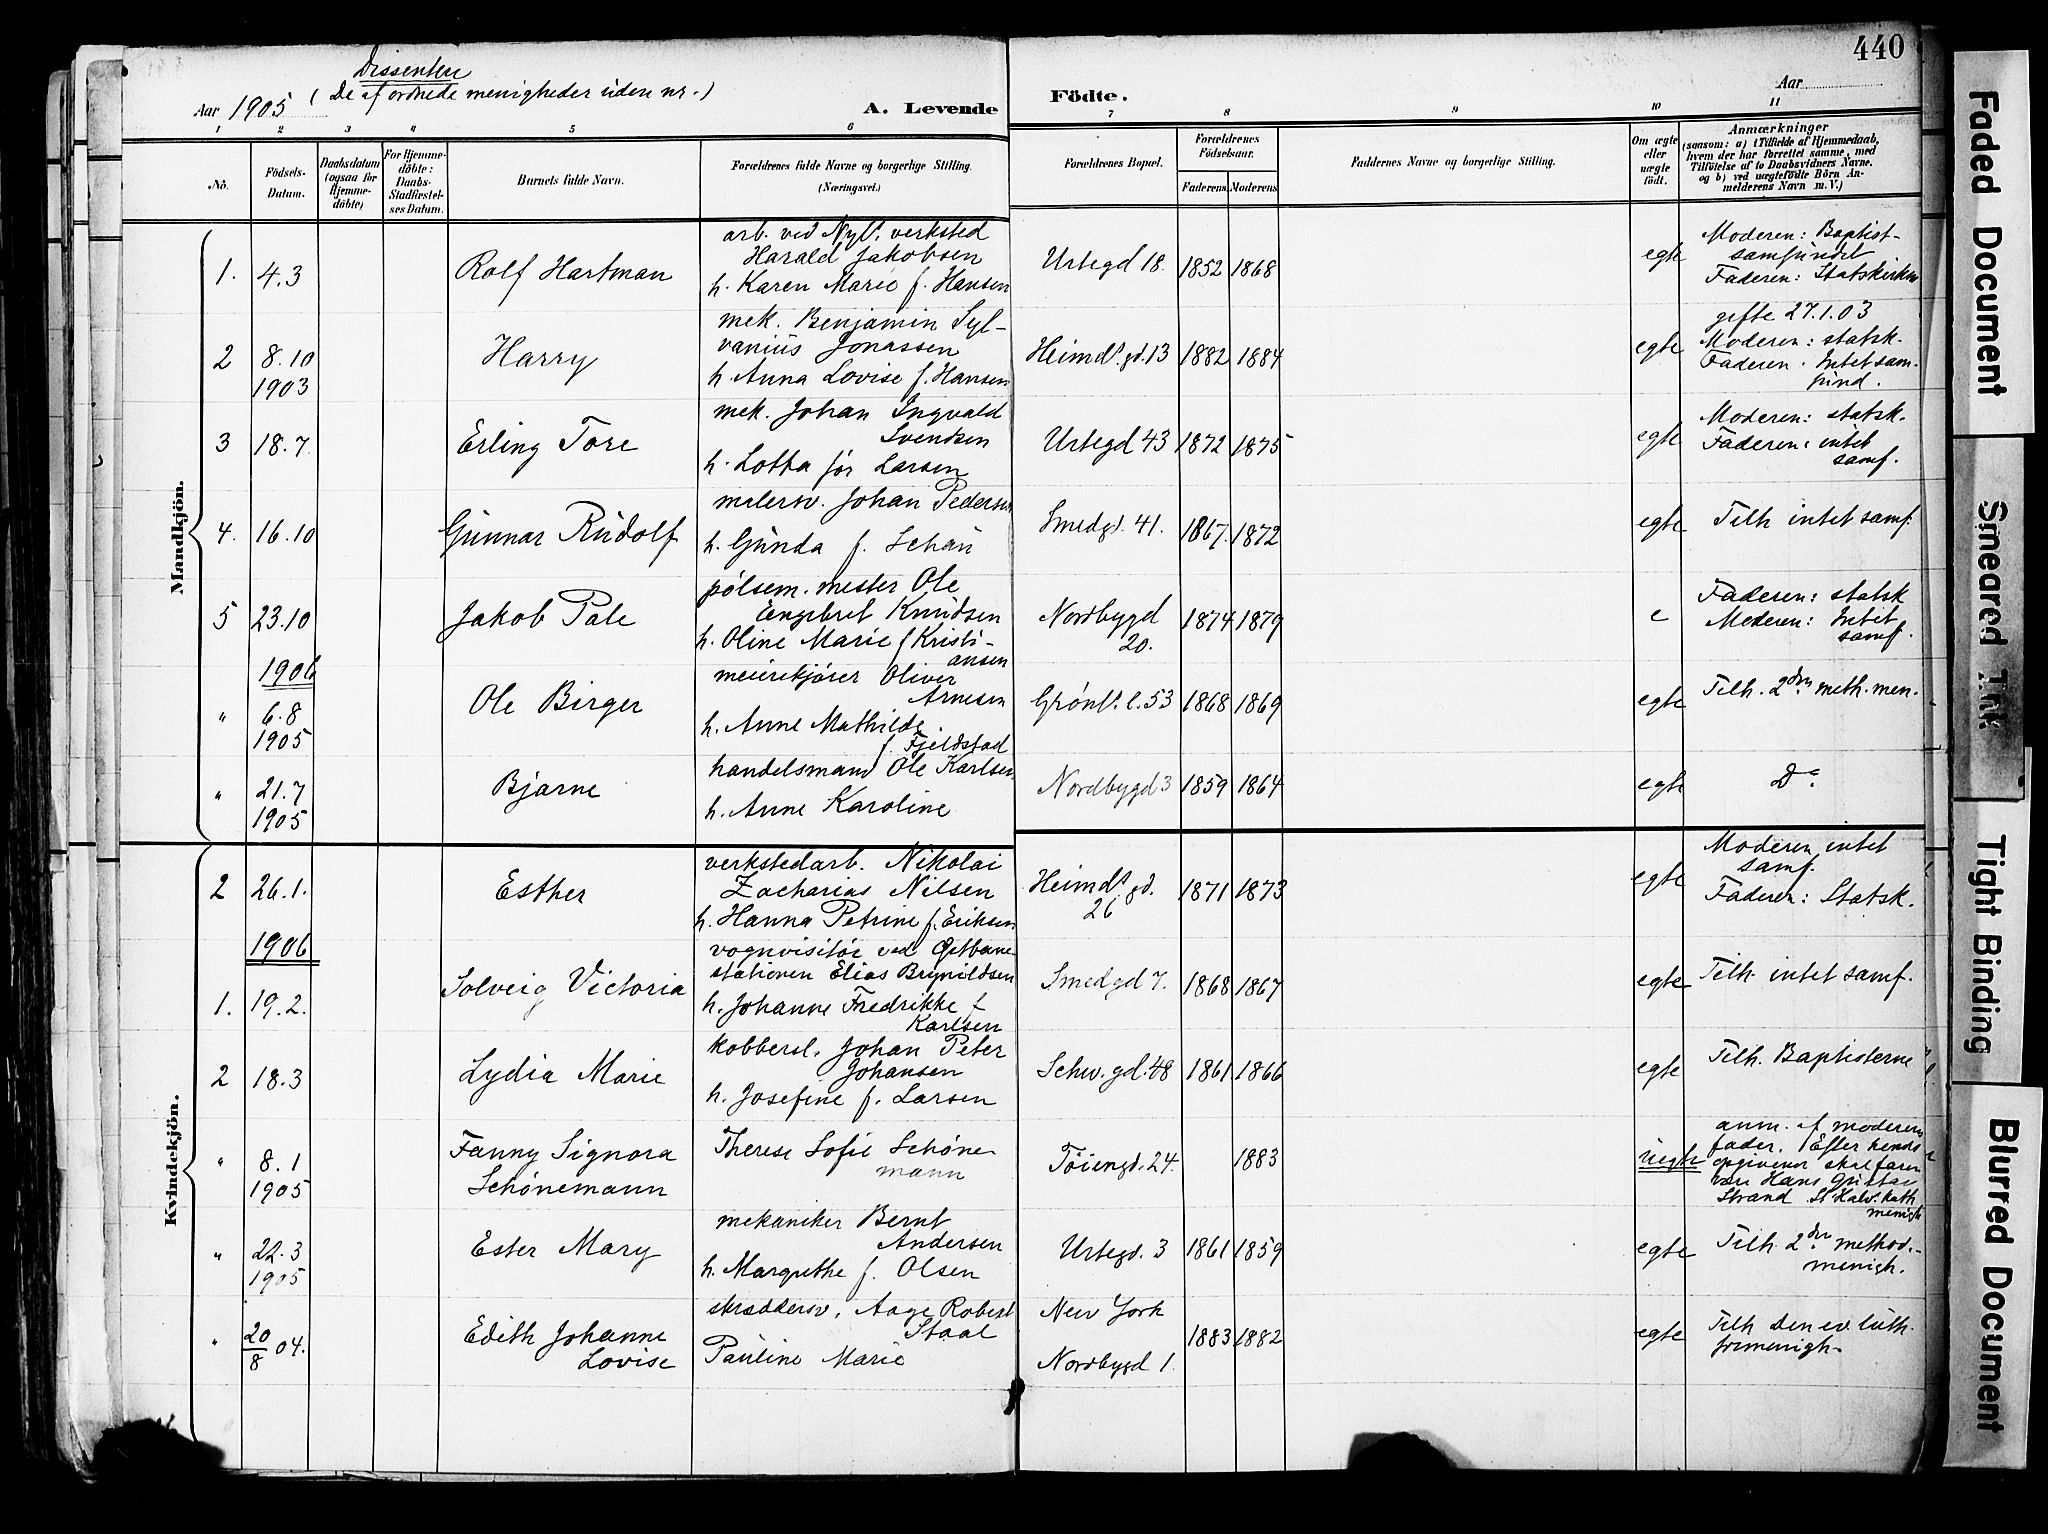 440
Dissentere
(De af ordnede menigheder uden nr.)
Aar 1905
A. Levende
Födte.
Aar
1 2 3 4 5 6 7 8 9 10 11
No.
Födsels-
Datum.
Daabsdatum
(ogsaa for
Hjemme-
döbte)
For Hjemme-
döbte:
Daabs-
Stadfæstel-
ses Datum.
Barnets fulde Navn.
Forældrenes fulde Navne og borgerlige Stilling.
(Næringsvei.)
Forældrenes Bopæl.
Forældrenes
Födselsaar.
Faderens. Moderens.
Faddernes Navne og borgerlige Stilling.
Om ægte
eller
uægte
födt.
Anmærkninger
(saasom: a) i Tilfælde af Hjemmedaab,
hvem der har forrettet samme, med
Tilföielse af to Daabsvidners Navne,
og b) ved uægtefödte Börn An-
melderens Navn m. V.)
Mandkjön.
1. 4.3 Rolf Hartman
arb. ved Nyl. verksted
Harald Jakobsen
h. Karen Marie f. Hansen
Urtegd 18. 1852 1868
egte
Moderen: Baptist-
samfundet
Faderen: Statskirken
2 8.10
1903
Harry
mek. Benjamin Syl-
vanius Jonassen
h. Anna Lovise f. Hansen
Heimds.gd.13 1882 1884
egte
gifte 27.1.03
Moderen: statsk.
Faderen. Intet sam-
fund.
3 18.7 Erling Tore
mek. Johan Ingvald
Svendsen
h. Lotta før Larsen
Urtegd 43 1872 1875
egte
Moderen: statsk.
Faderen: intet
samf.
4. 16.10 Gunnar Rudolf
malersv. Johan Pedersen
h. Gunda f. Schau
Smedgd. 41. 1867. 1872
egte
Tilh intet samf.
5 23.10 Jakob Pale
pølsem. mester Ole
Engebret Knudsen
h. Oline Marie f Kristi-
ansen
Nordbygd
20.
1874 1879
e
Faderen: statsk
Moderen: Intet
samf.
1906
" 6.8
1905
Ole Birger
meierikjører Oliver
Arnesen
h. Anne Mathilde
f. Fjeldstad
Grønl. l. 53 1868 1869
egte
Tilh. 2den meth. men.
" 21.7
1905
Bjarne
handelsmand Ole Karlsen
h. Anne Karoline
Nordbygd 3 1859 1864
egte
Do
Kvindekjön.
2 26.1. Esther
verkstedarb. Nikolai
Zacharias Nilsen
h. Hanna Petrine f. Eriksen
Heimds.gd.
26
1871 1873
egte
Moderen intet
samf.
Faderen: Statsk.
1906
1. 19.2. Solveig Victoria
vognvisitør ved Østbane-
stationen Elias Brynildsen
h. Johanne Fredrikke f
Karlsen
Smedgd 7. 1868 1867
egte
Tilh. intet samf.
2 18.3 Lydia Marie
kobbersl. Johan Peter
Johansen
h. Josefine f. Larsen
Schw.gd.48 1861 1866
egte
Tilh. Baptisterne
" 8.1
1905
Fanny Signora
Schønemann
Therese Sofie Schøne
mann
Tøiengd. 24. 1883
uegte
anm. af moderens
fader. Efter hendes
opgivende skal faren
være Hans Gustav
Strand St Halv. kath
menigh
" 22.3
1905
Ester Mary
mekaniker Bernt
Andersen
h. Margrethe f. Olsen
Urtegd. 3 1861 1859
egte
Tilh. 2den method.-
menigh.
" 20/8 04.
Edith Johanne
Lovise
skræddersv. Aage Robert
Staal
Pauline Marie
New York
Nordbygd 1.
1883 1882
egte
Tilh den ev. luth.
frimenigh.
Faded Document
Smeared Ink
Tight Binding
Blurred Document